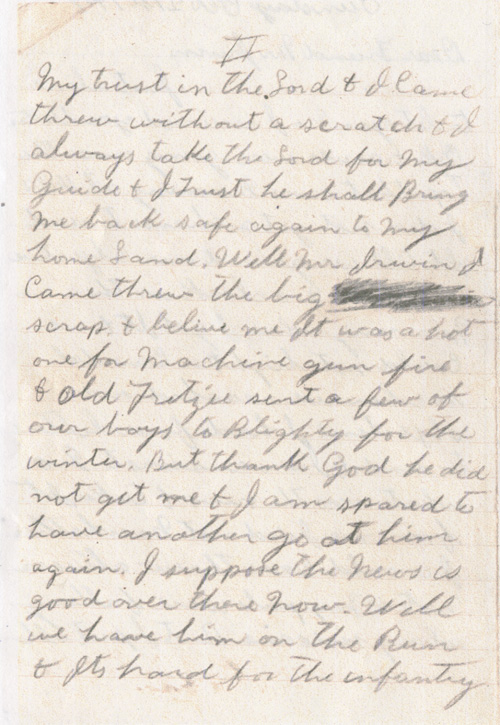 II
My trust in the Lord & I Came
threw without a scratch & I
always take the Lord for My
Guide & I Trust he shall Bring
Me back safe again to My
home Land. Well Mr Irwin I
Came threw the big
scrap. & belive me It was a hot
one for Machine gun fire
& old Fretzie sent a few of
our boys to Blighty for the
winter. But thank God he did
not get me & I am spared to
have another go at him
again. I suppose the News is
good over there Now. Well
we have him on the Run
& Its hard for the infantry